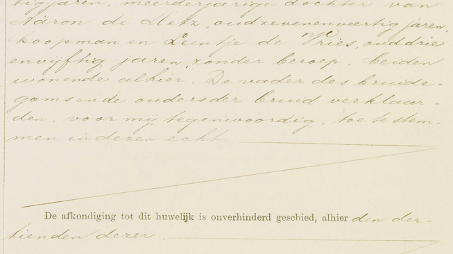 tigjaren, meerderjarige dochter van
Aäron de Metz, oudzevenenveertig jaren,
koopman en Leentje de Vries, ouddrie
envijftig jaren, zonder beroep, beiden
wonende alhier. De vader des bruide-
goms en de ouders der bruid verklaar-
den, voor mij tegenwoordig, toe te stem-
men in dezen echt.
De afkondiging tot dit huwelijk is onverhinderd geschied, alhier den der-
tienden dezer.